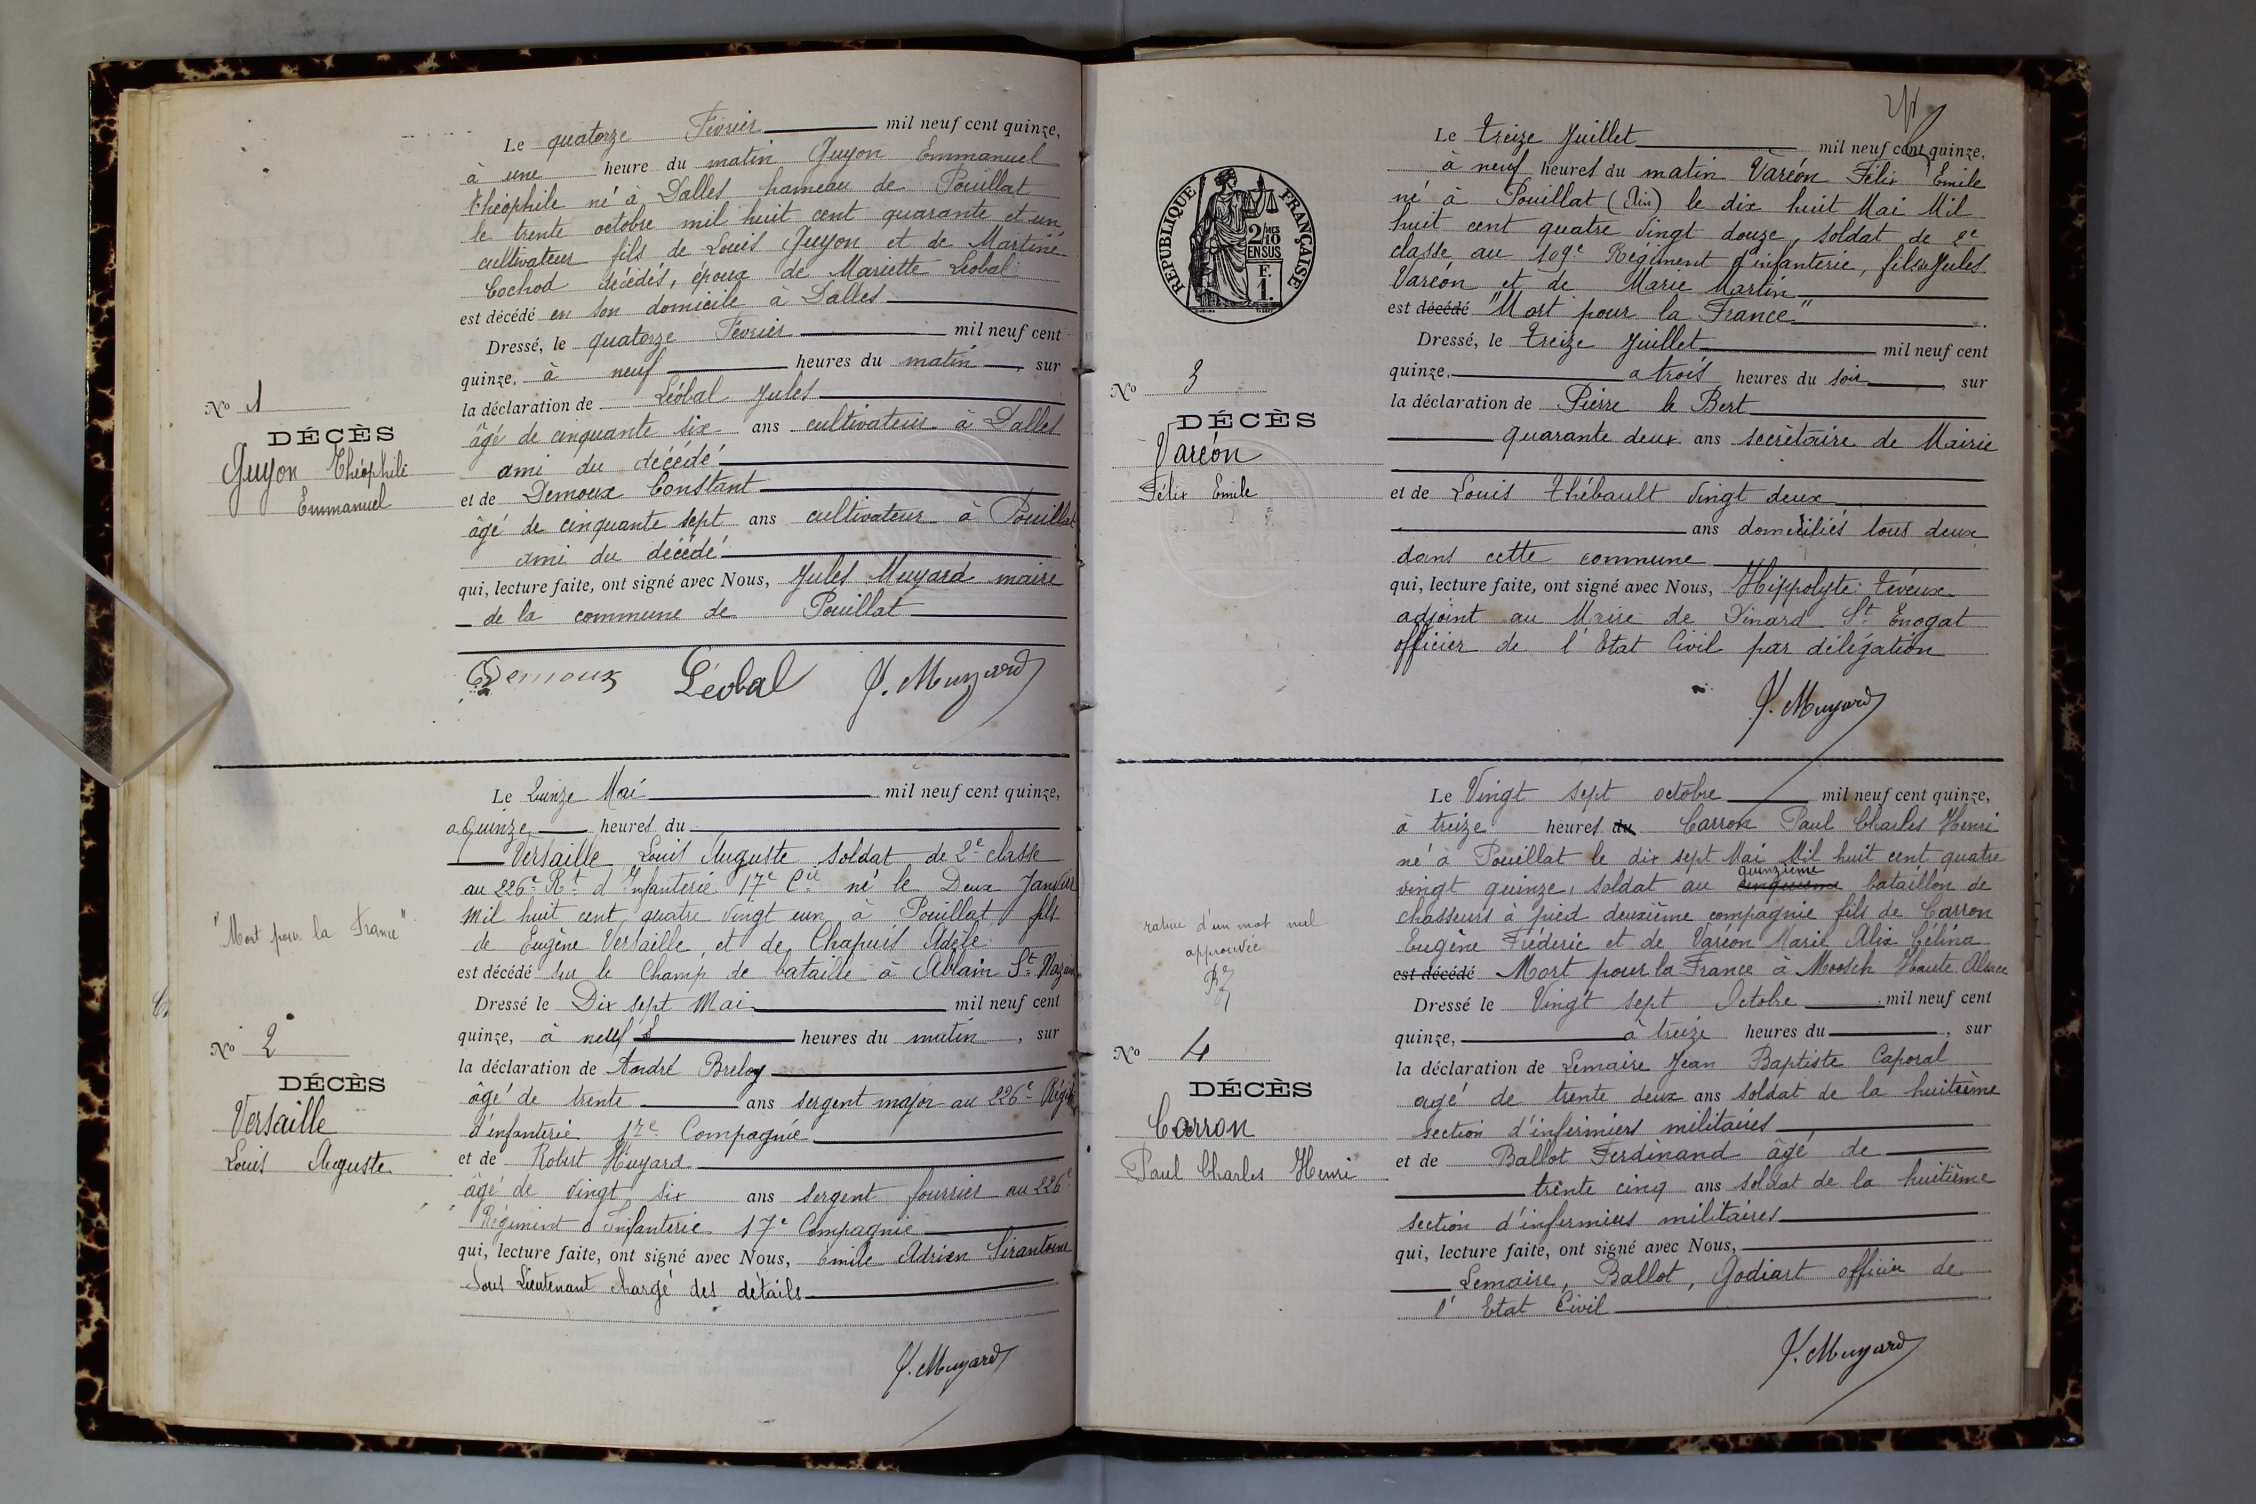 Le quatorze Février mil neuf cent quinze,
à une heure du matin Guyon Emmanuel
théophile né à Dalles hameau de Pouillat
le trente octobre mil huit cent quarante et un
cultivateur fils de Louis Guyon et de Martine
Cochod décédés, époux de Mariette Léobal
est décédé en son domicile à Dalles
Dressé, le quatorze Février mil neuf cent
quinze, à neuf heures du matin, sur
la déclaration de Léobal Jules
âgé de cinquante six ans cultivateur à Dalles
ami du décédé
et de Demoux Constant
âgé de cinquante sept ans cultivateur à Pouillat
ami du décédé
qui, lecture faite, ont signé avec Nous, Jules Muyard maire
de la commune de Pouillat
Demoux Léobal J. Muyard
No 1
DÉCÈS
Guyon Théophile
Emmanuel
Le Quinze Mai mil neuf cent quinze,
a Quinze heures du
Versaille Louis Auguste soldat de 2e classe
au 226e Rt d'Infanterie 17e Cie né le Deux Janvier
mil huit cent quatre vingt un à Pouillat fils
de Eugène Versaille et de Chapuis Adèle
est décédé sur le Champ de bataille à Ablain St Nazaire
Dressé le Dix sept Mai mil neuf cent
quinze, à neuf heures du matin, sur
la déclaration de André Breloy
âgé de trente ans sergent major au 226e Régit
d'infanterie 17e Compagnie
et de Robert Huyard
âgé de vingt six ans sergent fourrier au 226e
Régiment d'Infanterie 17e Compagnie
qui, lecture faite, ont signé avec Nous, Emile Adrien Sirantoine
Sous Lieutenant chargé des détails
J. Muyard
"Mort pour la France"
No 2
DÉCÈS
Versaille
Louis Auguste
Le treize Juillet mil neuf cent quinze,
à neuf heures du matin Varéon Félix Emile
né à Pouillat (Ain) le dix huit Mai Mil
huit cent quatre vingt douze, soldat de 2e
classe au 109e Régiment d'infanterie, fils de Jules
Varéon et de Marie Martin
est décédé "Mort pour la France"
Dressé, le treize Juillet mil neuf cent
quinze, a trois heures du soir, sur
la déclaration de Pierre le Bert
quarante deux ans secrétaire de Mairie
et de Louis Thébault vingt deux
ans domiciliés tous deux
dans cette commune
qui, lecture faite, ont signé avec Nous, Hippolyte
adjoint au Maire de Dinard St Enogat
officier de l'Etat Civil par délégation
J. Muyard
REPUBLIQUE FRANÇAISE
2/10MES
EN SUS
F.
1.
No 3
DÉCÈS
Varéon
Félix Emile
Le Vingt sept octobre mil neuf cent quinze,
à treize heures du Carron Paul Charles Henri
né à Pouillat le dix sept Mai Mil huit cent quatre
quinzième
vingt quinze, soldat au cinquième bataillon de
chasseurs à pied deuxième compagnie fils de Carron
Eugène Fréderic et de Varéon Marie Alix Célina
est décédé Mort pour la France à Moosch Haute Alsace
Dressé le Vingt sept Octobre mil neuf cent
quinze, à treize heures du, sur
la déclaration de Lemaire Jean Baptiste Caporal
agé de trente deux ans soldat de la huitième
section d'infirmiers militaires
et de Ballot Ferdinand âgé de
trente cinq ans soldat de la huitième
section d'infirmiers militaires
qui, lecture faite, ont signé avec Nous,
Lemaire, Ballot, Godiart officier de
l'Etat Civil
J. Muyard
rature d'un mot nul
approuvée
No 4
DÉCÈS
Carron
Paul Charles Henri